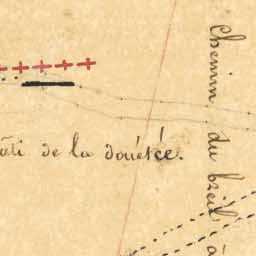 Chemin du breil à
de la douétée.